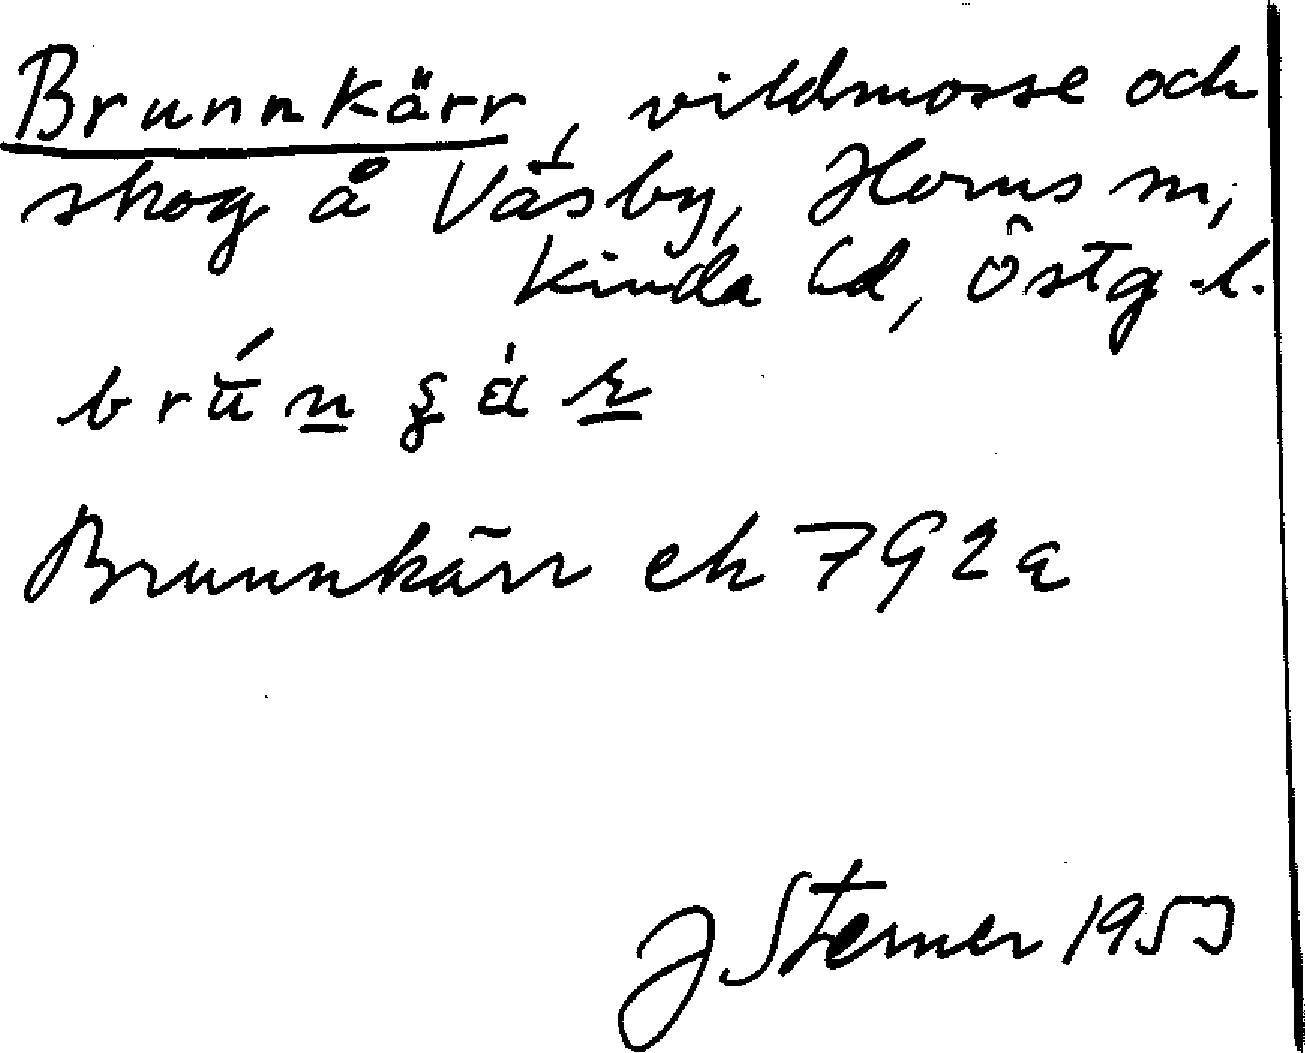 Brunnkärr, vildmosse och
skog å Väsby, Horns sn,
Kinda hd, Östg.l.
Brunnkärr ek 792a
J Sterner 1953